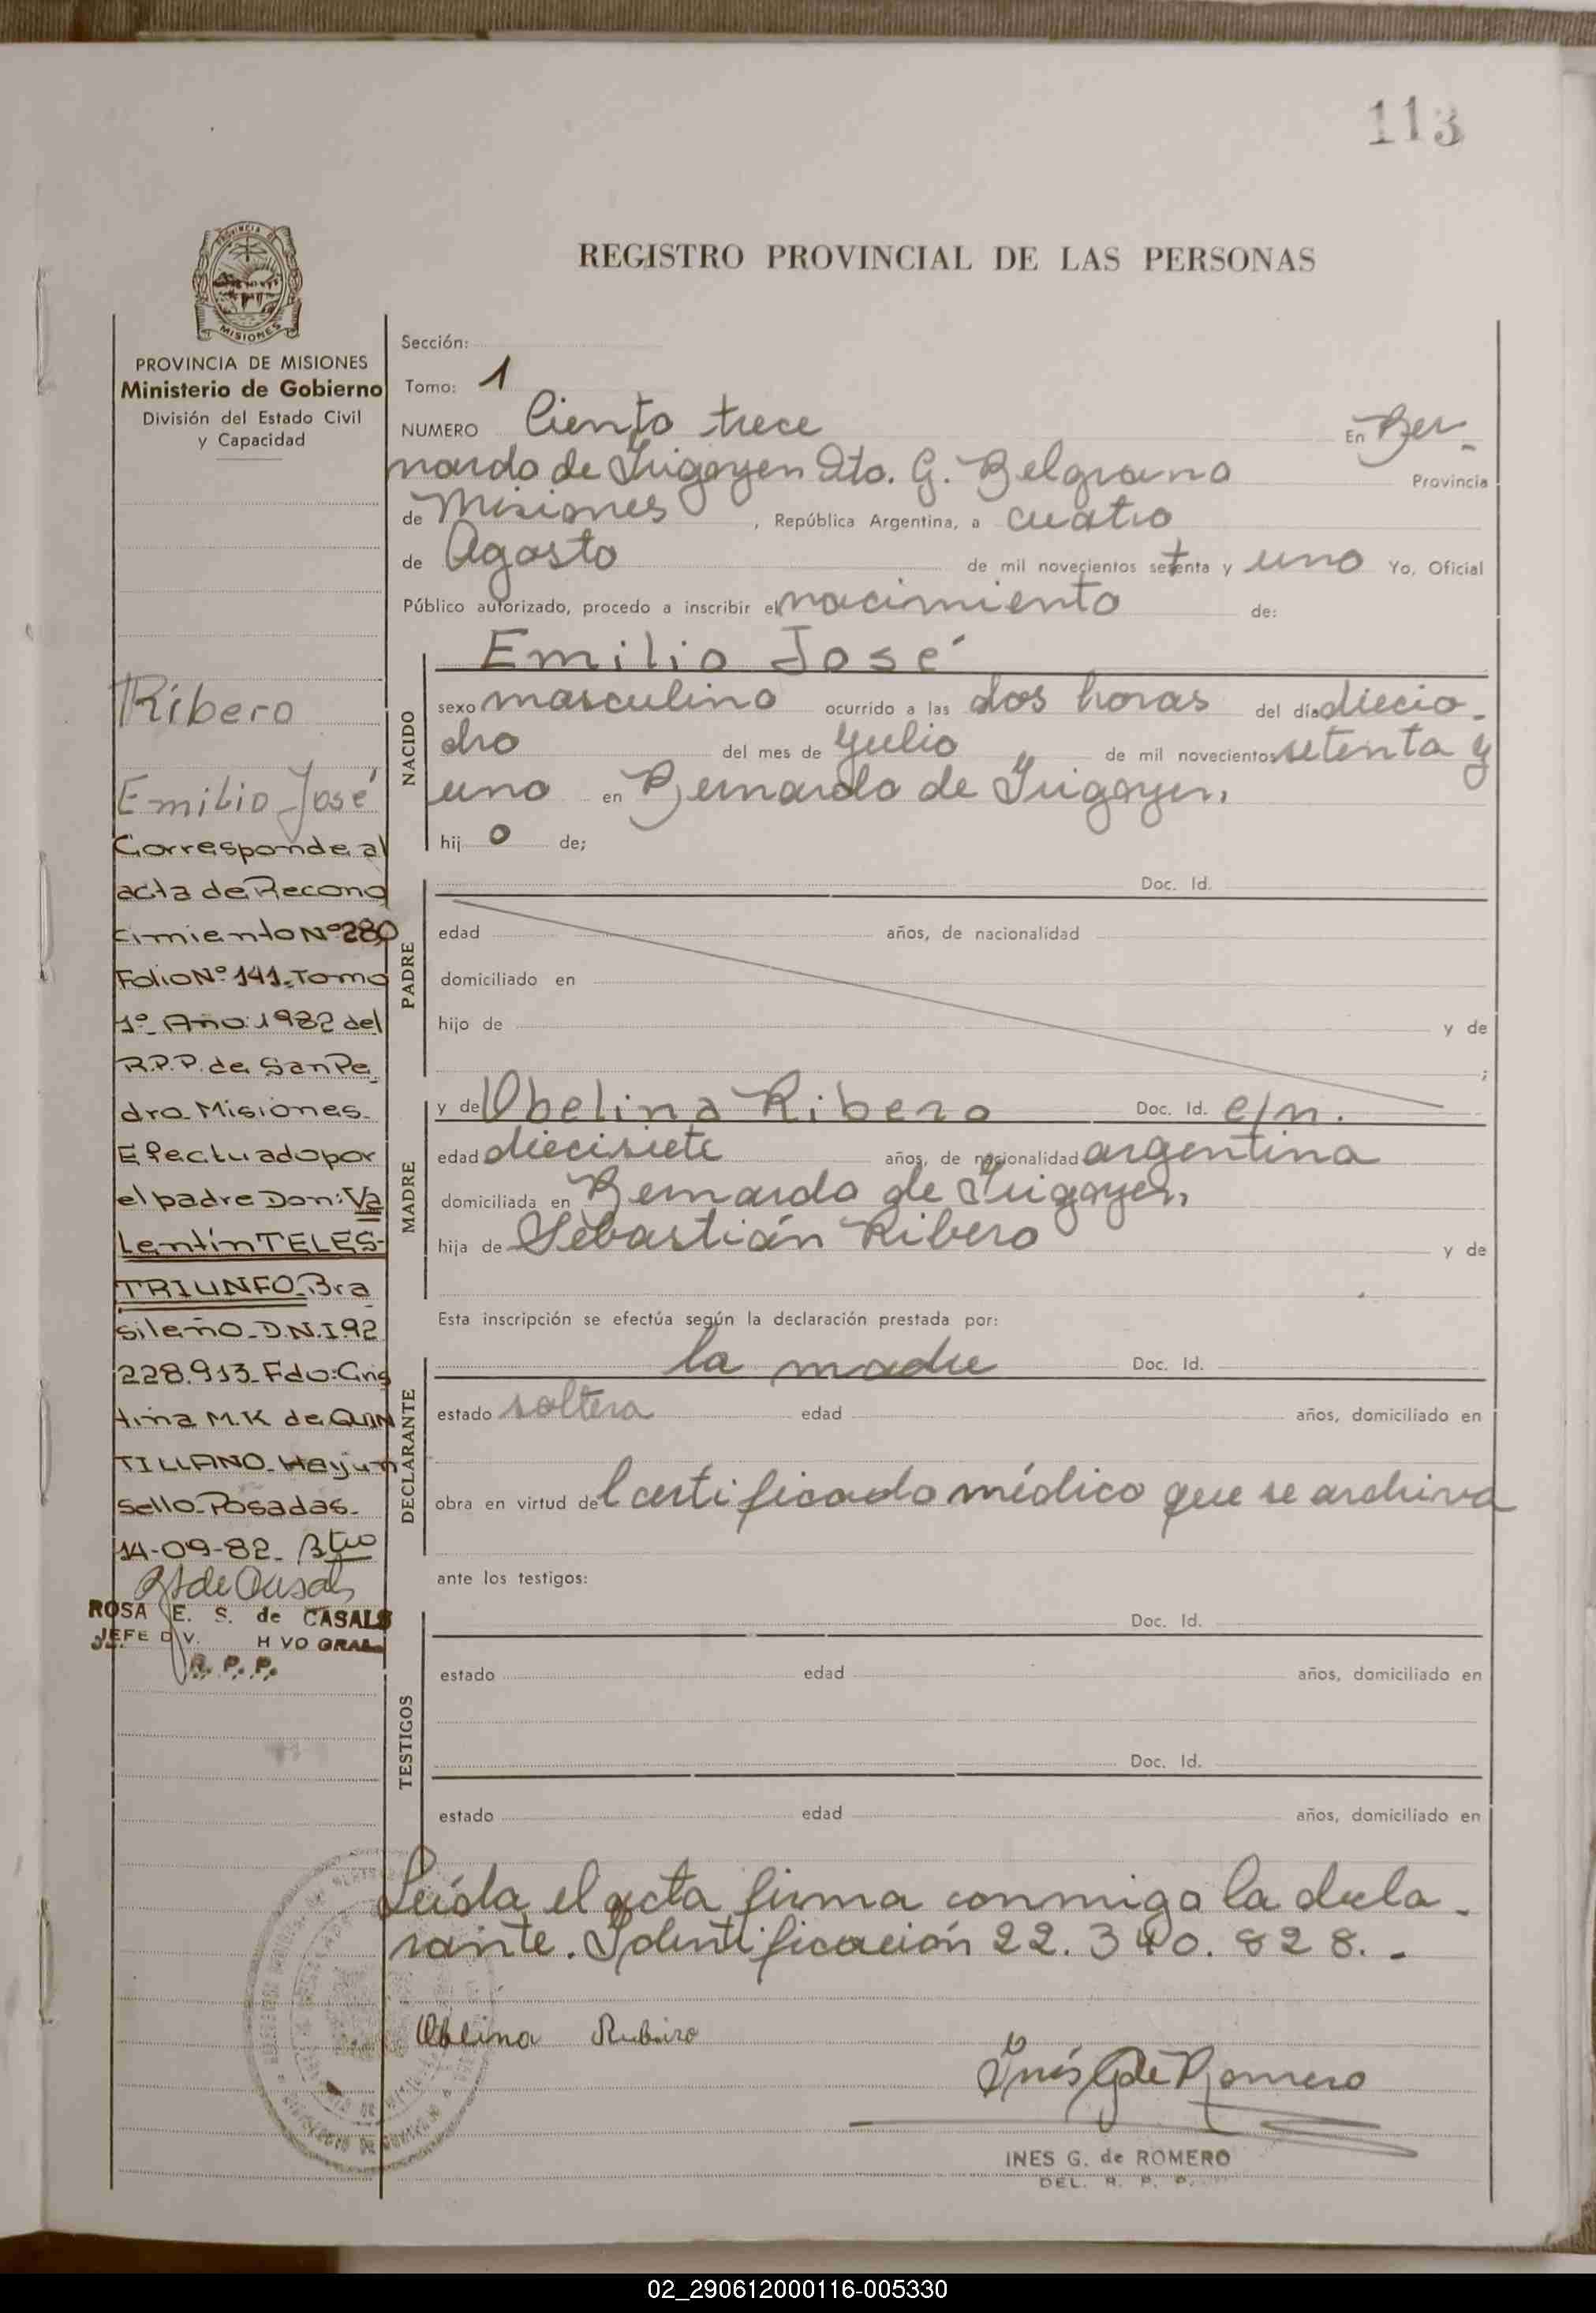 113
REGISTRO PROVINCIAL DE LAS PERSONAS
PROVINCIA DE
MISIONES
PROVINCIA DE MISIONES
Ministerio de Gobierno
División del Estado Civil
y Capacidad
Ribero
Emilio José
Corresponde al
acta de Recono
cimiento Nº 280
Folio Nº 141-Tomo
1º Año: 1982 del
R.P.P. de San Pe
dro Misiones.
Efectuado por
el padre Don: Va
lentín TELES-
TRIUNFO-Bra
sileño-D.N.I.92
228.913-Fdo: Cris
tina M.K de QUIN
TILLANO-Hay un
sello-Posadas-
14-09-82-
ROSA E. S. de CASALS
JEFE DIV.
R. P. P.
Sección:
Tomo: 1
NUMERO Ciento trece En Ber-
nardo de Irigoyen Dto. G. Belgrano Provincia
de Misiones, República Argentina, a cuatro
de Agosto de mil novecientos setenta y uno Yo, Oficial
Público autorizado, procedo a inscribir el nacimiento de:
NACIDO
Emilio José
sexo masculino ocurrido a las dos horas del día diecio-
cho del mes de Julio de mil novecientos setenta y
uno en Bernardo de Irigoyen,
hij o de;
PADRE
Doc. Id.
edad años, de nacionalidad
domiciliado en
hijo de y de
;
MADRE
y de Obelina Ribero Doc. Id. e/n.
edad diecisiete años, de nacionalidad argentina
domiciliada en Bernardo de Irigoyen,
hija de Sebastián Ribero y de
.
Esta inscripción se efectúa según la declaración prestada por:
DECLARANTE
la madre Doc. Id.
estado soltera edad años, domiciliado en
obra en virtud del certificado médico que se archiva
ante los testigos:
TESTIGOS
Doc. Id.
estado edad años, domiciliado en
Doc. Id.
estado edad años, domiciliado en
Leída el acta firma conmigo la decla-
rante. Identificación 22.340.828.-
Inés G de Romero
INES G. de ROMERO
DEL. R. P. P.
02_290612000116-005330